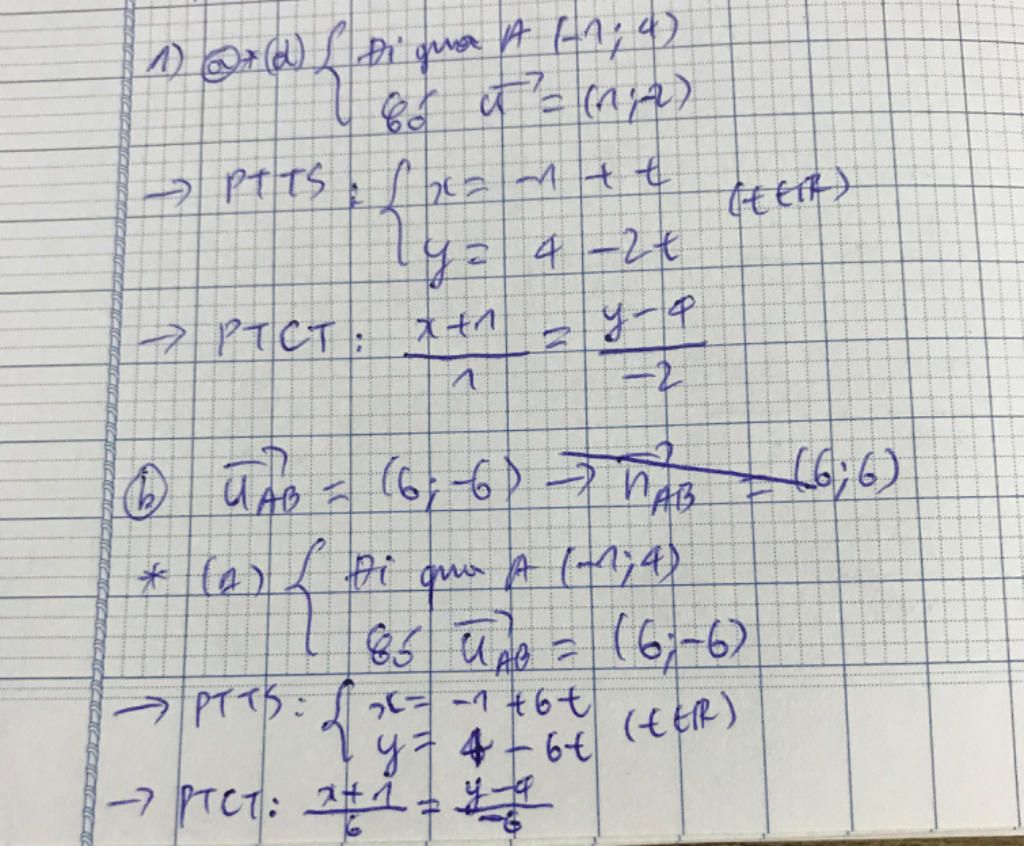 1) ⓐ * (d) { Đi qua A (-1; 4)
Có u⃗ = (1; -2)
→ PTTS : { x = -1 + t (t ∈ R)
y = 4 - 2t
→ PTCT : (x+1)/1 = (y-4)/-2
ⓑ u⃗AB = (6; -6) → n⃗AB = (6; 6)
* (Δ) { Đi qua A (-1; 4)
Có u⃗AB = (6; -6)
→ PTTS : { x = -1 + 6t (t ∈ R)
y = 4 - 6t
→ PTCT : (x+1)/6 = (y-4)/-6